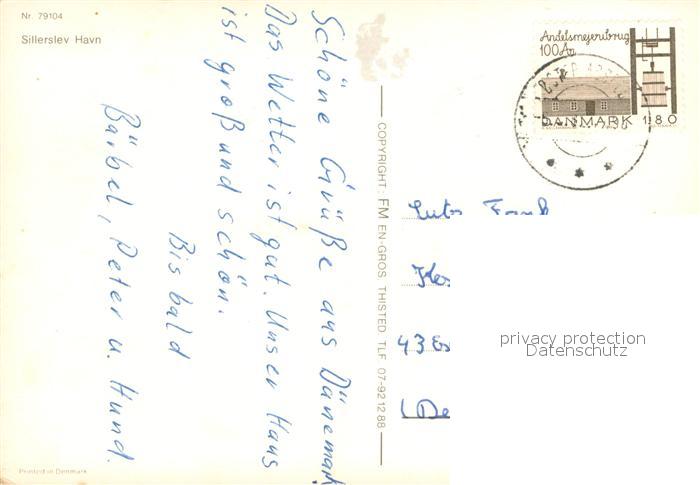 Nr. 79104
Sillerslev Havn
Schöne Grüße aus Dänemark!
Das Wetter ist gut. Unser Haus
ist groß und schön.
Bis bald
Bärbel, Peter u. Hund.
Printed in Denmark
COPYRIGHT: FM EN-GROS THISTED TLF 07-92 12 88
Andelsmejeribrug
100 År
DANMARK 180
43 Es
(De
privacy protection
Datenschutz